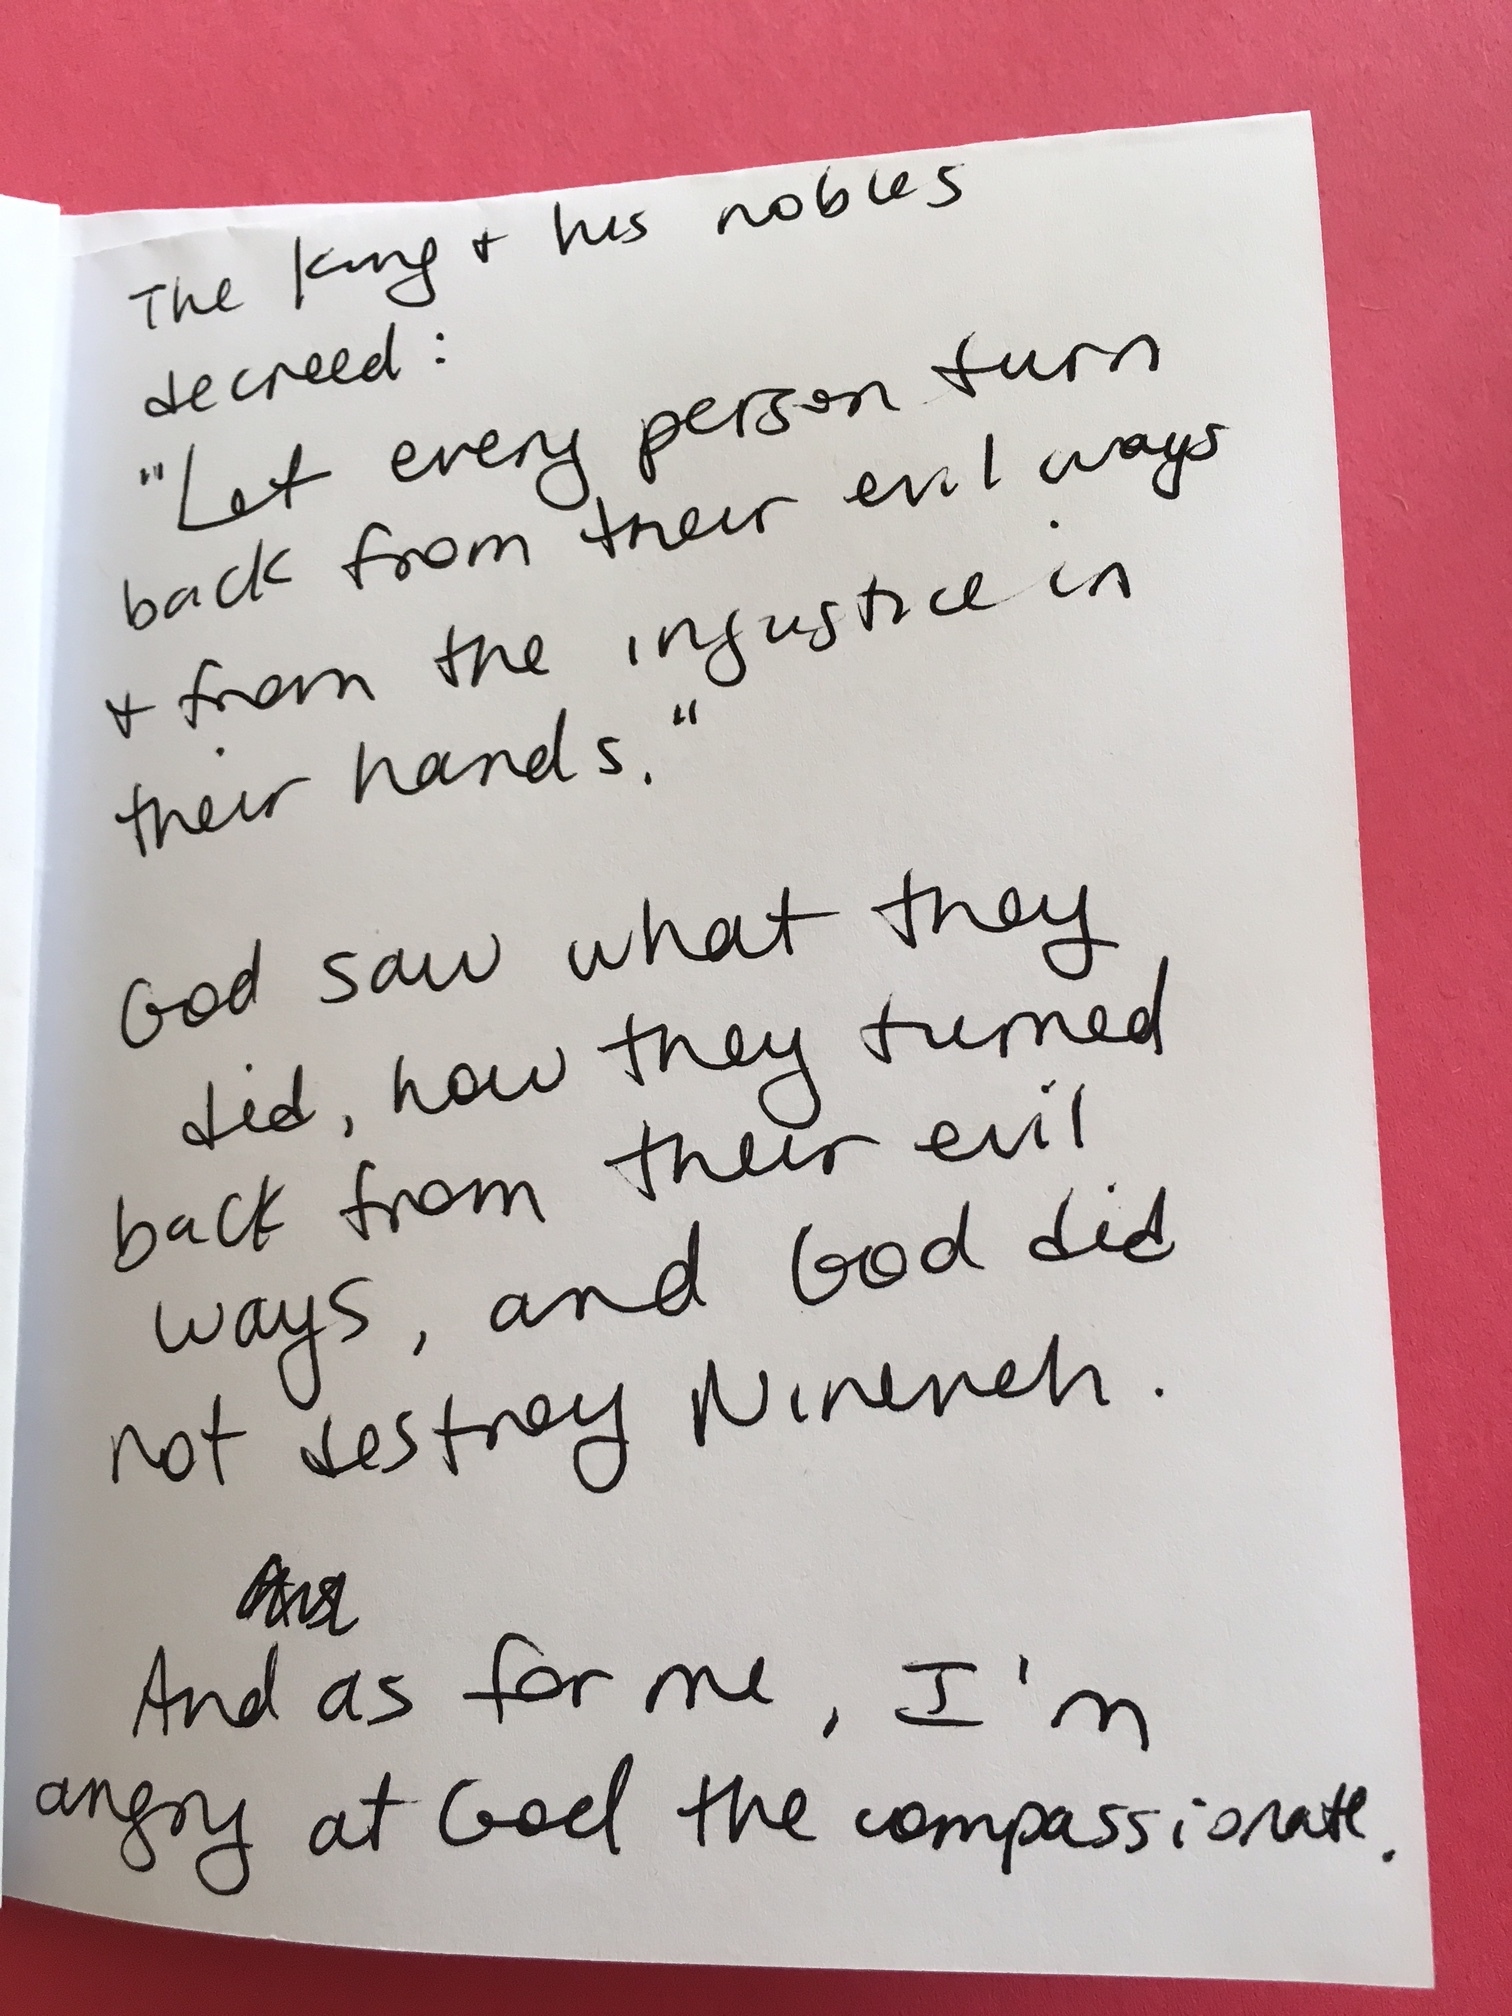 The King + his nobles
decreed:
"Let every person turn
back from their evil ways
+ from the injustice in
their hands."
God saw what they
did, how they turned
back from their evil
ways, and God did
not destroy Nineveh.
And as for me, I'm
angry at God the compassionate.